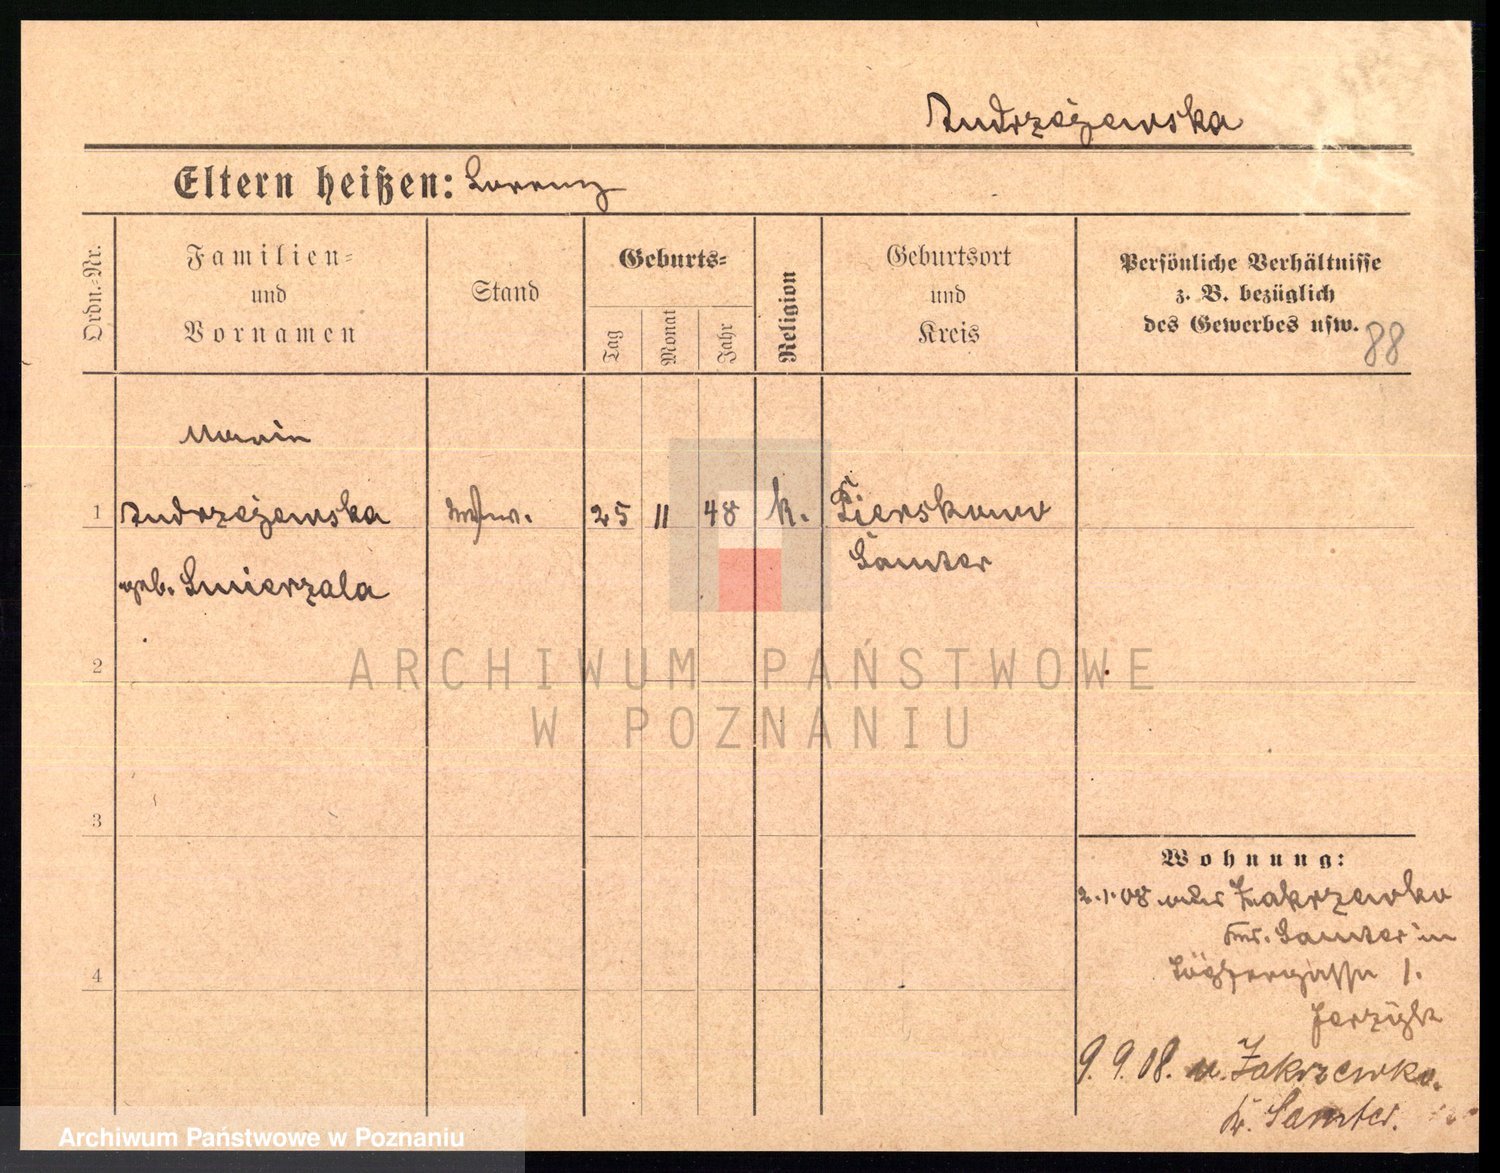 Andrzejewska
Eltern heißen: Lorenz
Ordn.-Nr.
Familien=
und
Vornamen
Stand
Geburts=
Tag
Monat
Jahr
Religion
Geburtsort
und
Kreis
Persönliche Verhältnisse
z. B. bezüglich
des Gewerbes usw.
88
Maria
1 Andrzejewska 25 11 48 k. Pierskowo
Samter
geb. Smierzala
2
ARCHIWUM PAŃSTWOWE
W POZNANIU
3
Wohnung:
2.1.08 aus Zakrzewko
Samter in
1.
4
9.9.08. n. Zakrzewko.
Kr. Samter.
Archiwum Państwowe w Poznaniu